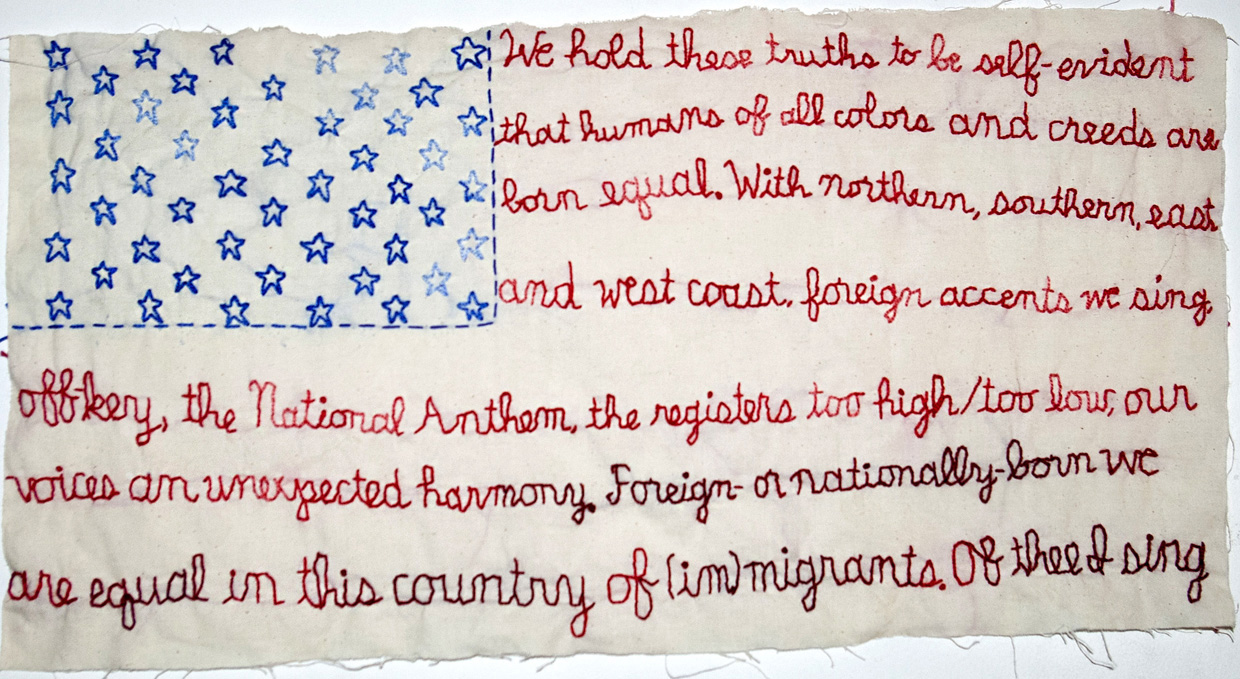 We hold these truths to be self-evident
that humans of all colors and creeds are
born equal. With northern, southern, east
and west coast, foreign accents we sing,
off-key, the National Anthem, the registers too high/too low, our
voices an unexpected harmony. Foreign- or nationally-born we
are equal in this country of (im)migrants. Of thee I sing